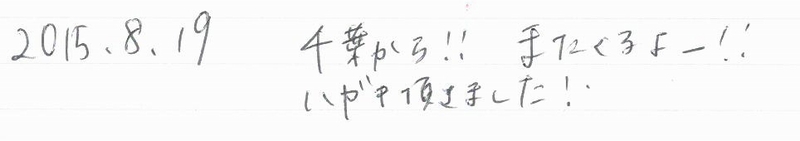 2015.8.19 千葉から!! またくるよー!!
いがき頂きました!